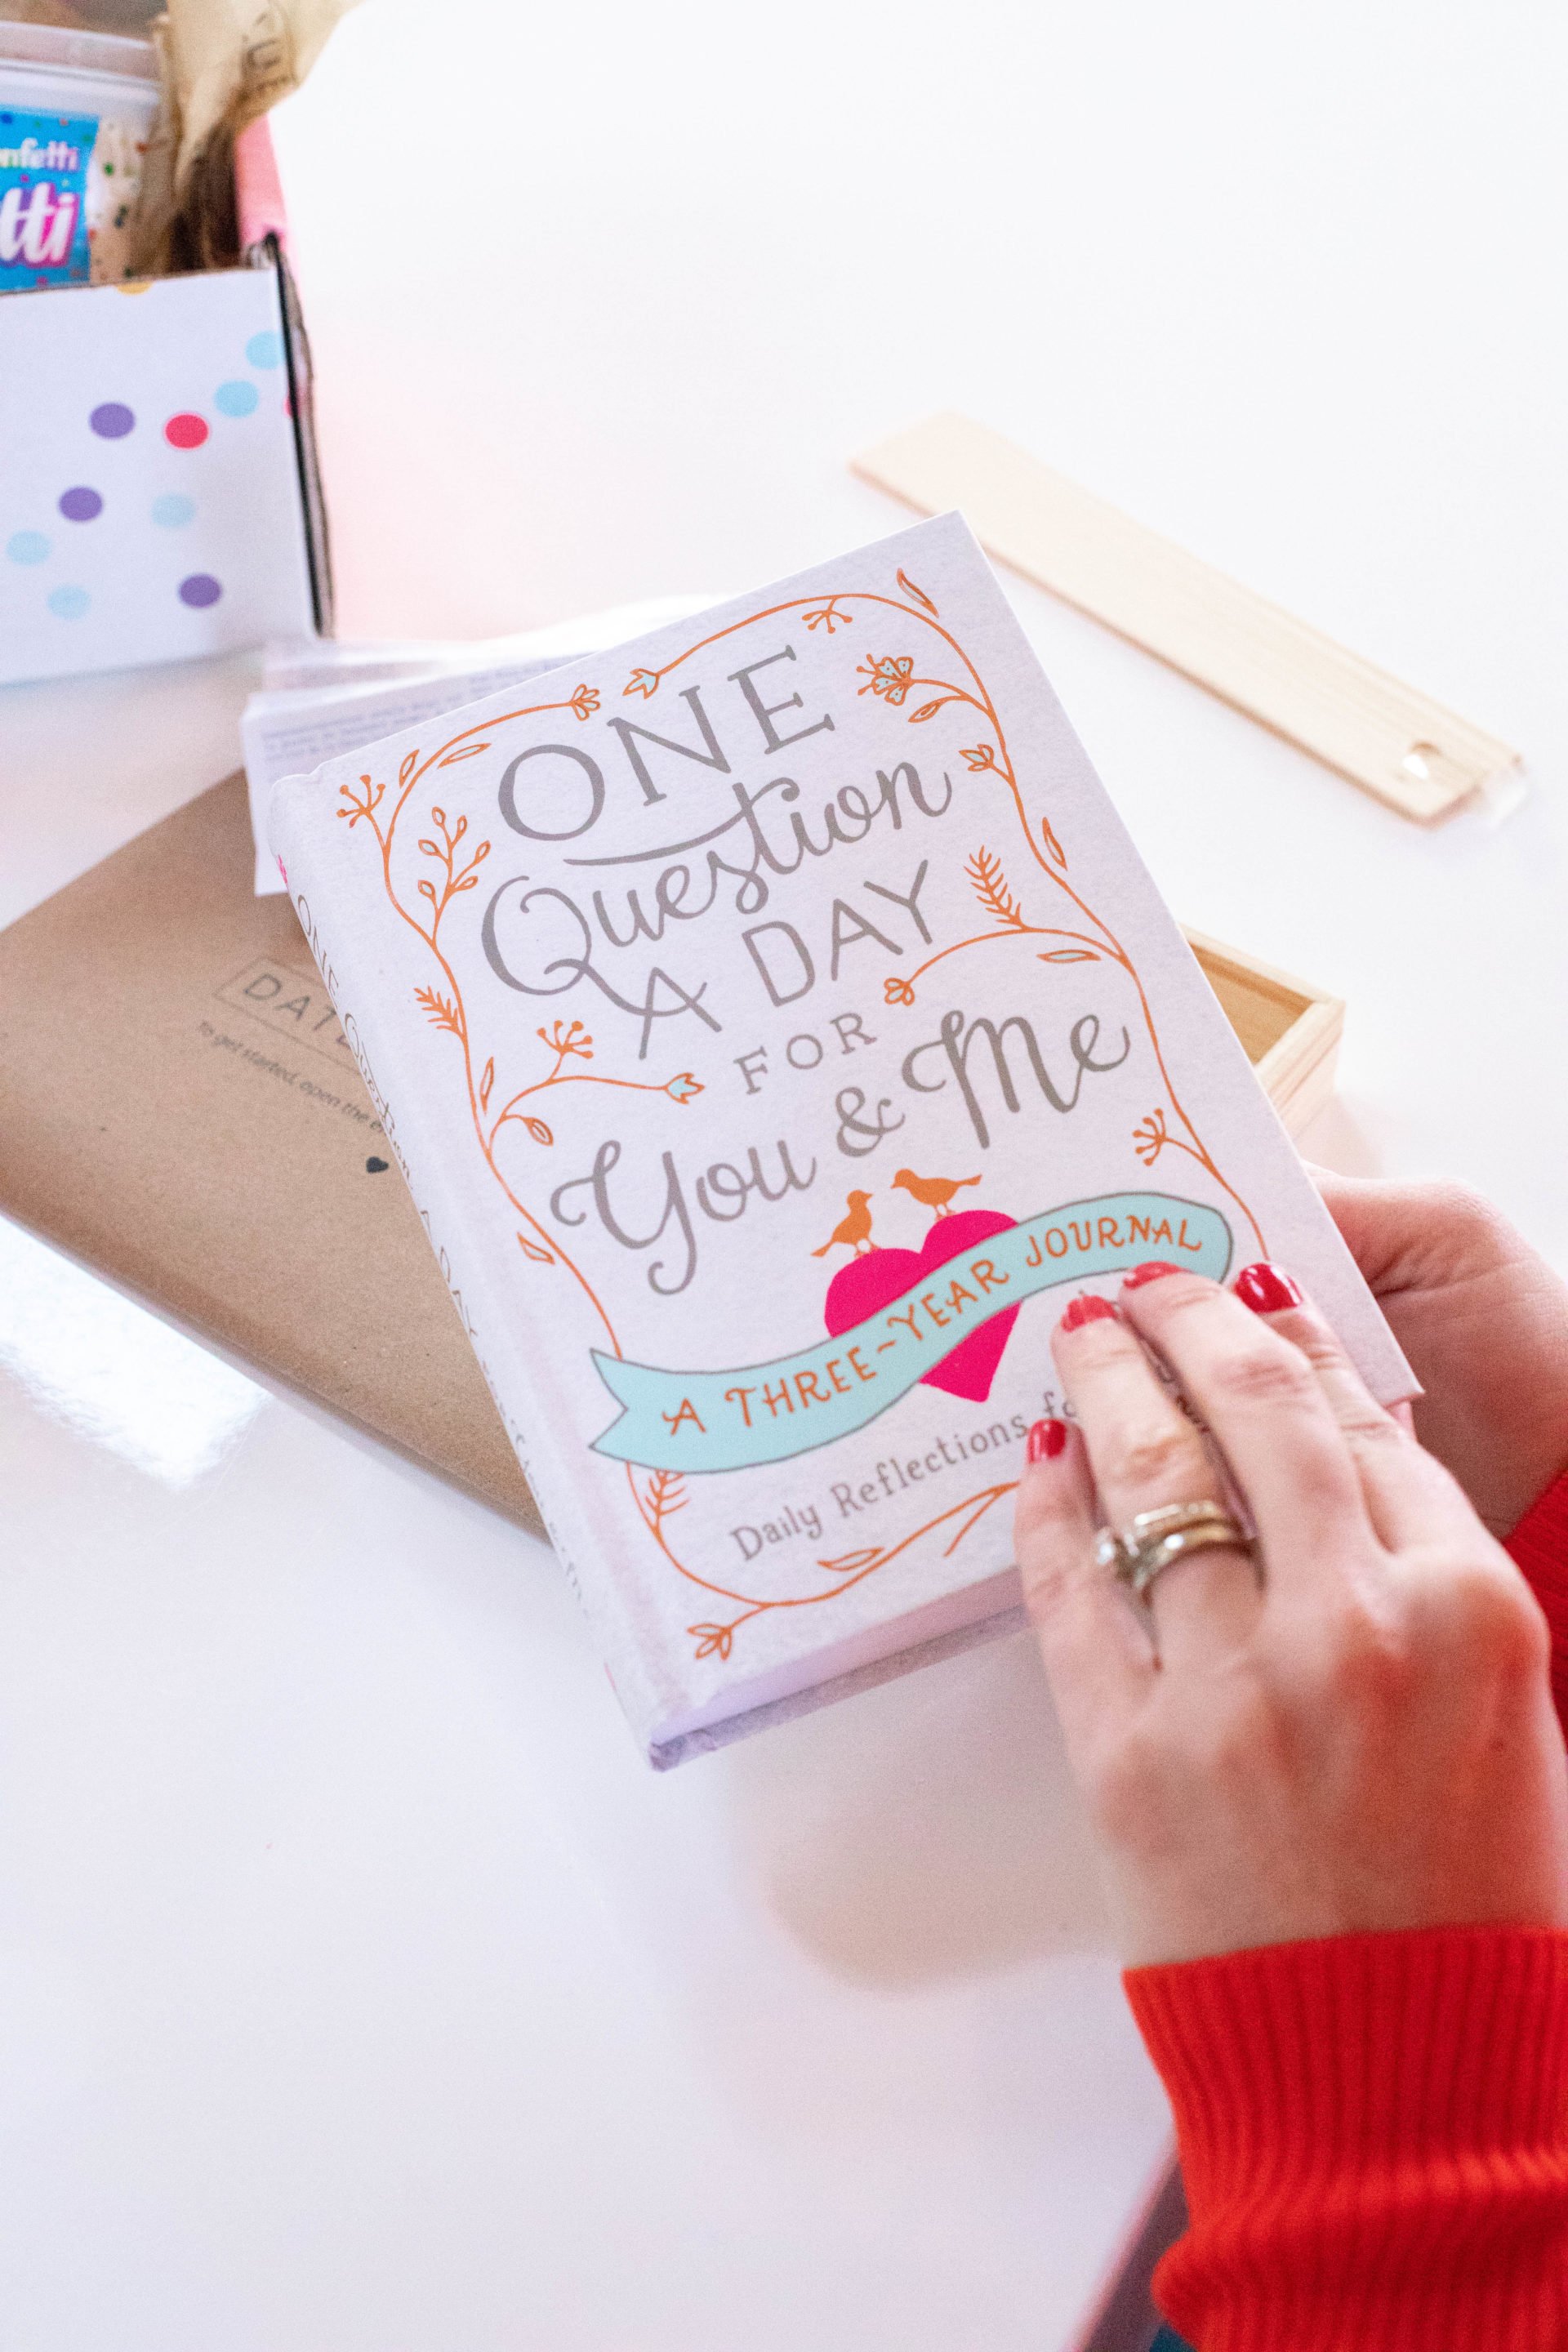 nfetti
tti
ONE
Question
A DAY
FOR
You & Me
A THREE-YEAR JOURNAL
Daily Reflections
DAT
To get started, open the
ONE Question A DAY